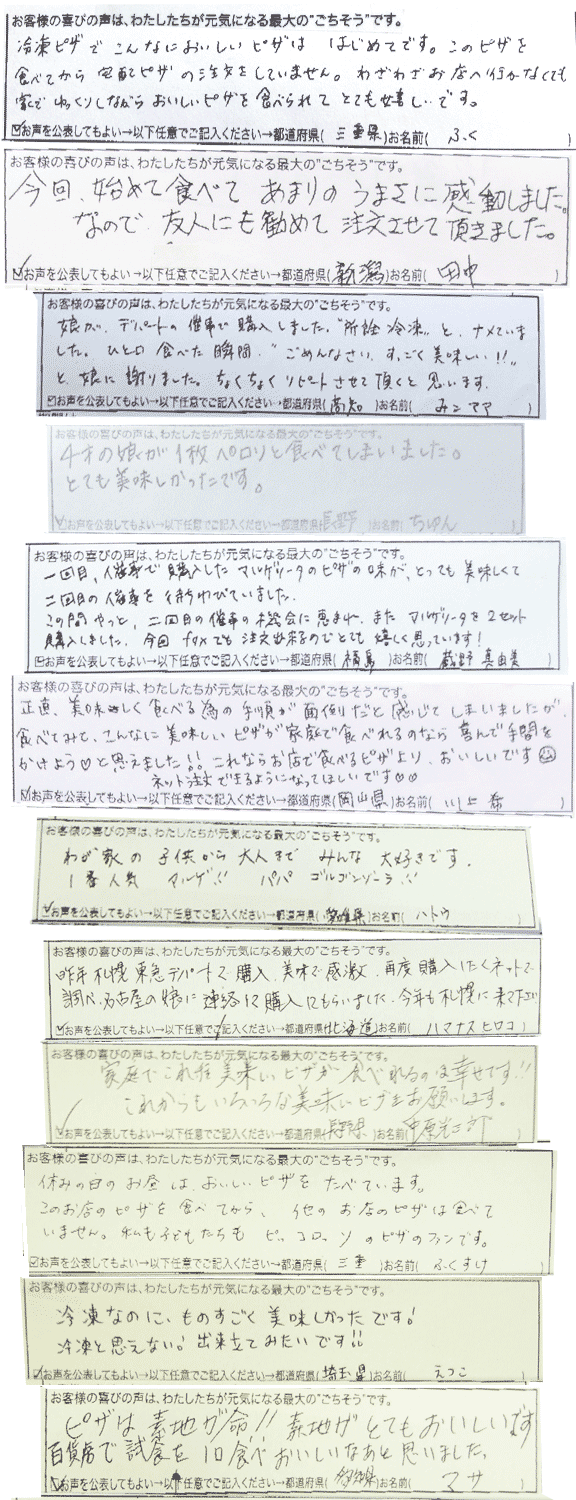 お客様の喜びの声は、わたしたちが元気になる最大の"ごちそう"です。
冷凍ピザでこんなにおいしいピザは はじめてです。このピザを
食べてから宅配ピザの注文をしていません。わざわざお店へ行かなくても
家で ゆっくりしながら おいしいピザを食べられて とても嬉しいです。
お声を公表してもよい→以下任意でご記入ください→都道府県( 三重県 )お名前( ふく )
お客様の喜びの声は、わたしたちが元気になる最大の"ごちそう"です。
今回、始めて食べて あまりの うまさに感動しました。
なので 友人にも勧めて注文させて頂きました。
お声を公表してもよい→以下任意でご記入ください→都道府県( 新潟 )お名前( 田中 )
お客様の喜びの声は、わたしたちが元気になる最大の"ごちそう"です。
娘が、デパートの催事で購入しました。"所詮冷凍"と、ナメていま
した。ひと口食べた瞬間、"ごめんなさい、すっごく美味しい!!"
と、娘に謝りました。ちょくちょくリピートさせて頂くと思います。
お声を公表してもよい→以下任意でご記入ください→都道府県( 高知 )お名前( みこママ )
お客様の喜びの声は、わたしたちが元気になる最大の"ごちそう"です。
4才の娘が1枚ペロリと食べてしまいました。
とても美味しかったです。
お声を公表してもよい→以下任意でご記入ください→都道府県( 長野 )お名前( ちゅん )
お客様の喜びの声は、わたしたちが元気になる最大の"ごちそう"です。
一回目、催事で購入したマルゲリータのピザの味が、とっても美味しくて
二回目の催事を待ちわびていました。
この間やっと、二回目の催事の機会に恵まれ、またマルゲリータを2セット
購入しました。今回faxでも注文出来るのでとても嬉しく思っています!
お声を公表してもよい→以下任意でご記入ください→都道府県( 福島 )お名前( 蔵野 真由美 )
お客様の喜びの声は、わたしたちが元気になる最大の"ごちそう"です。
正直、美味しく食べる為の手順が面倒だと感じてしまいましたが、
食べてみて、こんなに美味しいピザが家庭で食べれるのなら喜んで手間を
かけよう♡と思えました!!これならお店で食べるピザより、おいしいです
ネット注文できるようになってほしいです♡♡
お声を公表してもよい→以下任意でご記入ください→都道府県( 岡山県 )お名前( 川上 希 )
お客様の喜びの声は、わたしたちが元気になる最大の"ごちそう"です。
わが家の子供から大人まで みんな大好きです。
1番人気 マルゲ!! パパ ゴルゴンゾーラ!!
お声を公表してもよい→以下任意でご記入ください→都道府県( 愛媛県 )お名前( ハトウ )
お客様の喜びの声は、わたしたちが元気になる最大の"ごちそう"です。
昨年札幌東急デパートで購入、美味で感激、再度購入したくネットで
調べ、名古屋の娘に連絡して購入してもらいました。今年も札幌に来て下さい
お声を公表してもよい→以下任意でご記入ください→都道府県( 北海道 )お名前( ハマナスヒロコ )
お客様の喜びの声は、わたしたちが元気になる最大の"ごちそう"です。
家庭でこれ程美味しいピザが食べれるのは幸せです!!
これからもいろいろな美味しいピザをお願いします。
お声を公表してもよい→以下任意でご記入ください→都道府県( 長野県 )お名前( 中原 )
お客様の喜びの声は、わたしたちが元気になる最大の"ごちそう"です。
休みの日のお昼は、おいしいピザをたべています。
このお店のピザを食べてから、他のお店のピザは食べて
いません。私も子どもたちもピッコロ、ソのピザのファンです。
お声を公表してもよい→以下任意でご記入ください→都道府県( 三重 )お名前( ふくすけ )
お客様の喜びの声は、わたしたちが元気になる最大の"ごちそう"です。
冷凍なのに、ものすごく美味しかったです!
冷凍と思えない!出来立てみたいです!!
お声を公表してもよい→以下任意でご記入ください→都道府県( 埼玉県 )お名前( えつこ )
お客様の喜びの声は、わたしたちが元気になる最大の"ごちそう"です。
ピザは素地が命!!素地がとてもおいしいです
百貨店で試食を1口食べおいしいなあと思いました。
お声を公表してもよい→以下任意でご記入ください→都道府県( )お名前( マサ )